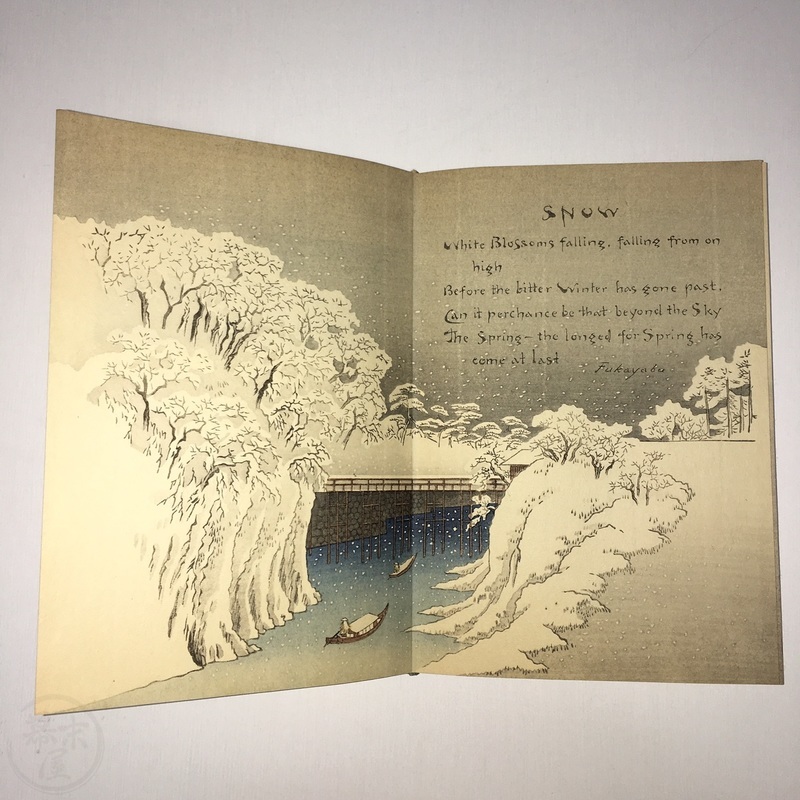 SNOW
White Blossoms falling, falling from on
high
Before the bitter Winter has gone past,
Can it perchance be that beyond the Sky
The Spring - the longed for Spring has
come at last
Fukayabu
幕末屋